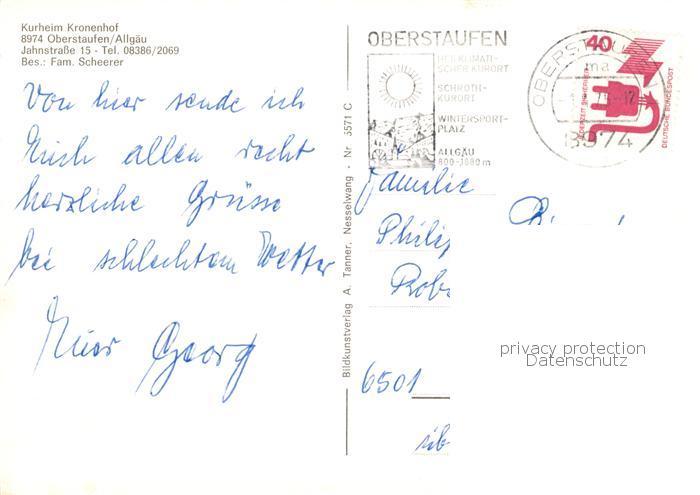 Kurheim Kronenhof
8974 Oberstaufen/Allgäu
Jahnstraße 15 - Tel. 08386/2069
Bes.: Fam. Scheerer
Von hier sende ich
Euch allen recht
herzliche Grüsse
bei schlechtem Wetter
Euer Georg
Bildkunstverlag A. Tanner, Nesselwang · Nr. 3571 C
OBERSTAUFEN
HEILKLIMATI-
SCHER KURORT
SCHROTH-
KURORT
WINTERSPORT-
PLATZ
ALLGÄU
800-1880 m
OBERSTAUFEN
ma
8974
40
JEDERZEIT SICHERHEIT
DEUTSCHE BUNDESPOST
Familie
Philip
Rob
6501
privacy protection
Datenschutz